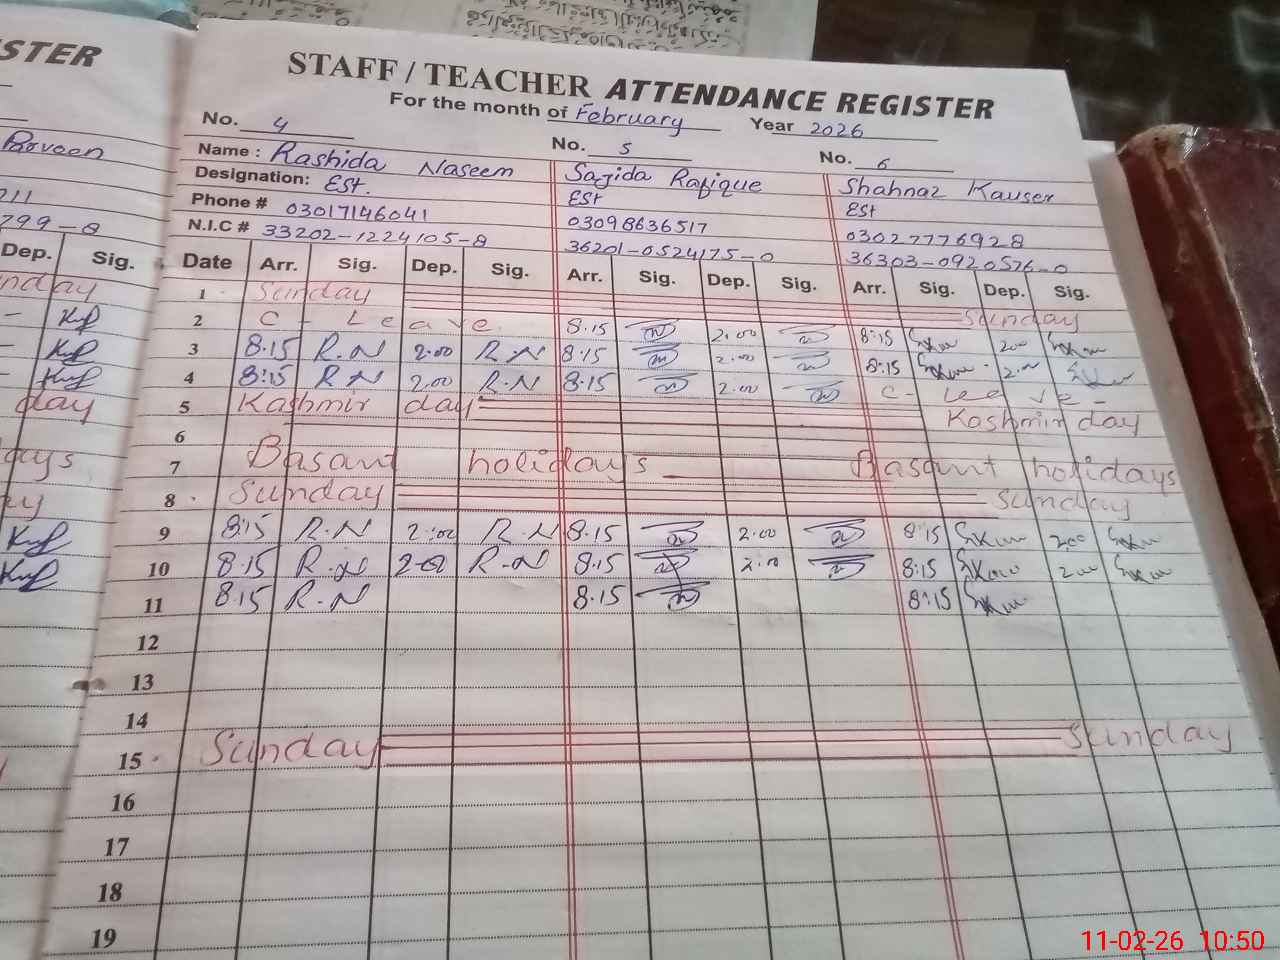 STER
STAFF / TEACHER ATTENDANCE REGISTER
For the month of February Year 2026
No. 4 No. 5 No. 6
Parveen Name : Rashida Naseem Sajida Rafique Shahnaz Kauser
Designation: Est. Est Est
211 Phone # 03017146041 03098636517 03027776928
799-8 N.I.C # 33202-1224105-8 36201-0524175-0 36303-0920576-0
Dep. Sig. Date Arr. Sig. Dep. Sig. Arr. Sig. Dep. Sig. Arr. Sig. Dep. Sig.
nday 1 Sunday Sunday
2 C - Leave. 8:15 2:00 8:15 200
3 8:15 R.N 2:00 R.N 8:15 2:00 8:15 200
4 8:15 R.N 2:00 R.N 8:15 2:00 C- Leave-
day 5 Kashmir day Kashmir day
6
days 7 Basant holidays Basant holidays
8 Sunday Sunday
9 8:15 R.N 2:00 R.N 8:15 2:00 8:15 200
10 8:15 R.N 2:00 R.N 8:15 2:00 8:15 200
11 8:15 R.N 8:15 8:15
12
13
14
15 Sunday Sunday
16
17
18
19
11-02-26 10:50